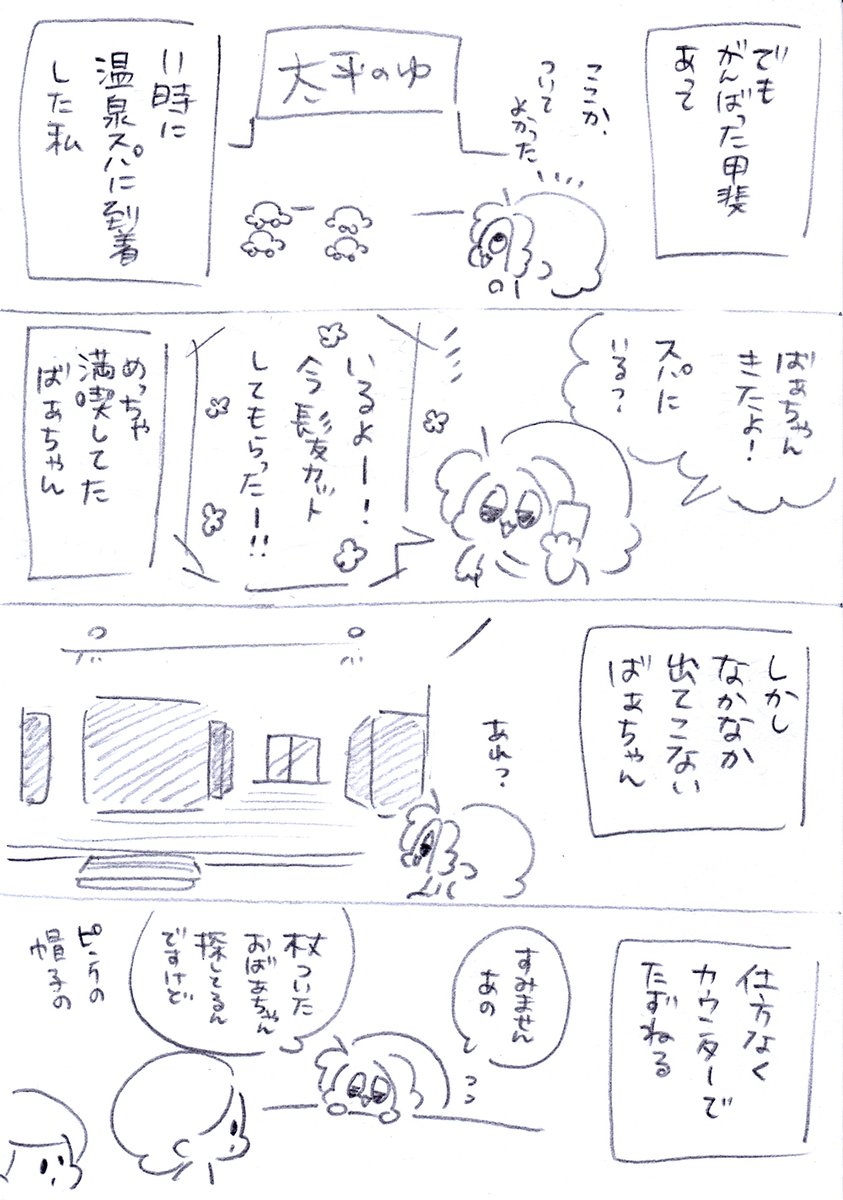 でも
がんばった甲斐
あって
ここか、
ついて
よかった
太平のゆ
11時に
温泉スパに到着
した私
ばぁちゃん
きたよ!
スパに
いるっ?
いるよー!
今髪カット
してもらったー!!
めっちゃ
満喫してた
ばぁちゃん
しかし
なかなか
出てこない
ばぁちゃん
あれっ?
仕方なく
カウンターで
たずねる
すみません
あの
杖ついた
おばあちゃん
探してるん
ですけど
ピンクの
帽子の